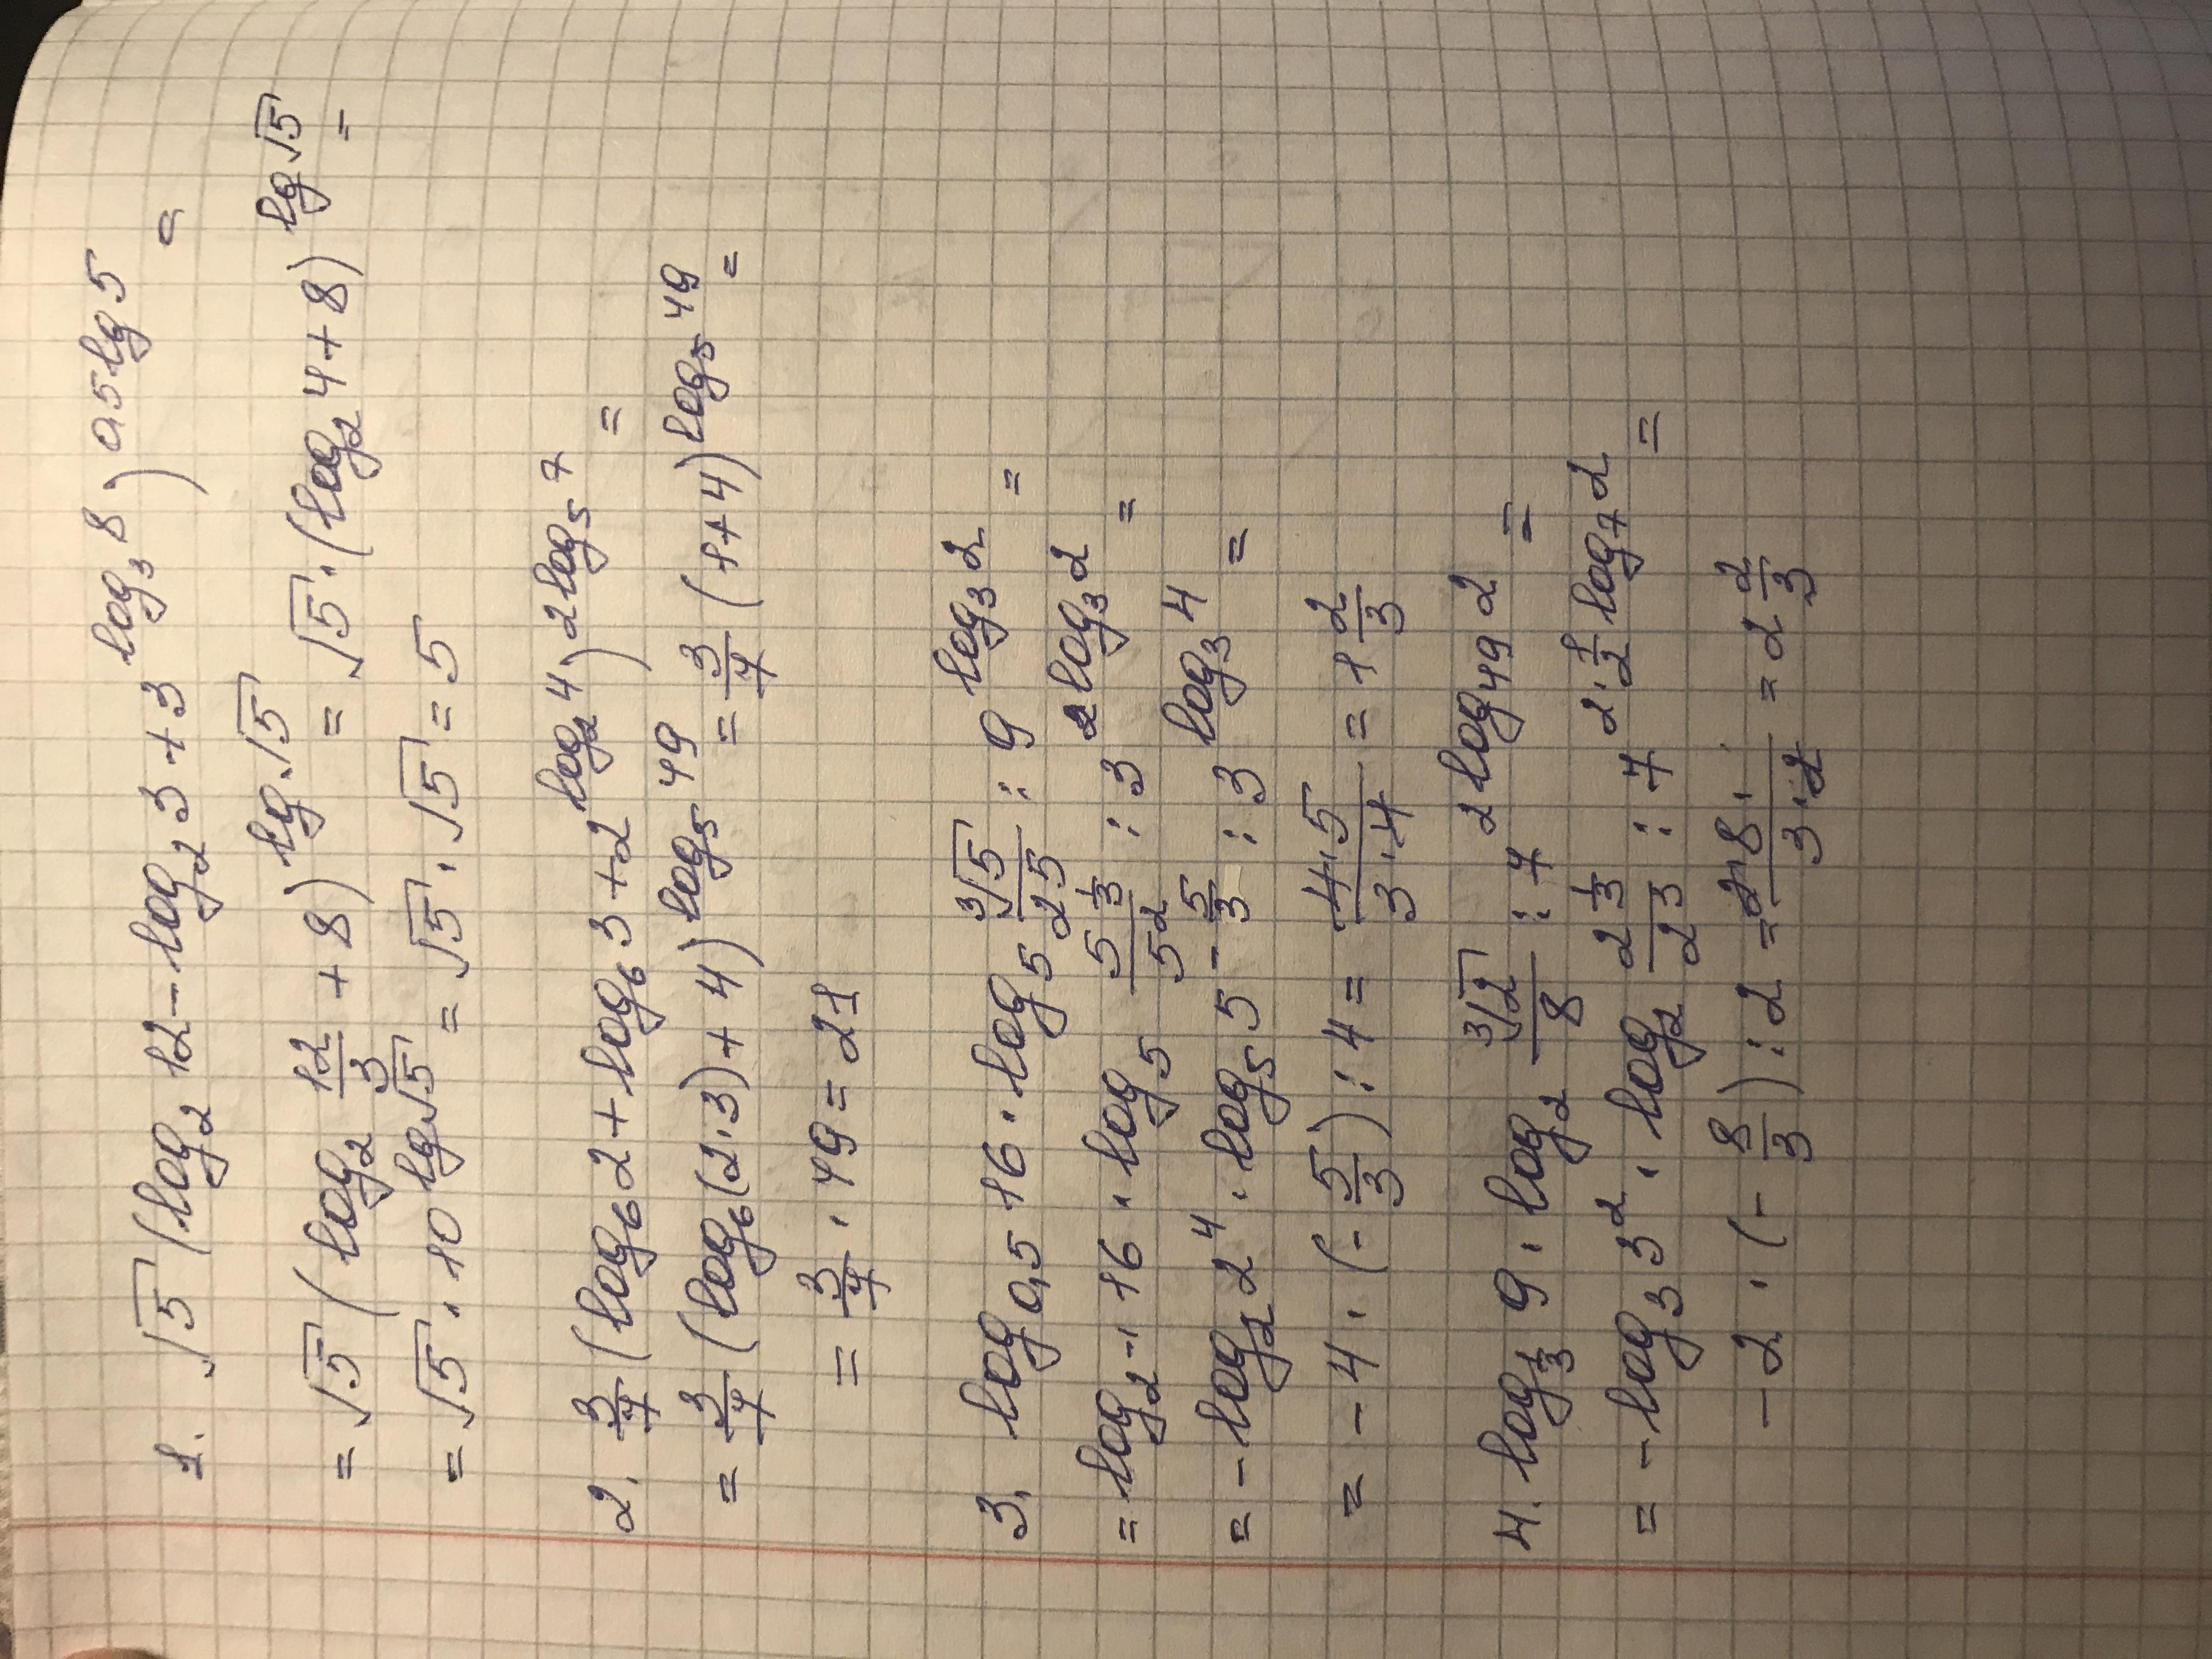 1. √5 (log₂ 12 - log₂ 3 + 3^(log₃ 8))^(0,5 lg 5) =
= √5 (log₂ 12/3 + 8)^(lg √5) = √5 · (log₂ 4 + 8)^(lg √5) =
= √5 · 10^(lg √5) = √5 · √5 = 5
2. 3/7 (log₆ 2 + log₆ 3 + 2^(log₂ 4))^(2 log₅ 7) =
= 3/7 (log₆ (2·3) + 4)^(log₅ 49) = 3/7 (1 + 4)^(log₅ 49) =
= 3/7 · 49 = 21
3. log₀,₅ 16 · log₅ ∛5/25 : 9^(log₃ 2) =
= log₂₋₁ 16 · log₅ 5^(1/3)/5² : 3^(2 log₃ 2) =
= - log₂ 2⁴ · log₅ 5^(-5/3) : 3^(log₃ 4) =
= - 4 · (- 5/3) : 4 = 4·5/3·4 = 1 2/3
4. log_(1/3) 9 · log₂ ∛2/8 : 7^(2 log₄₉ 2) =
= - log₃ 3² · log₂ 2^(1/3)/2³ : 7^(2 · 1/2 log₇ 2) =
- 2 · (- 8/3) : 2 = 2·8/3·2 = 2 2/3